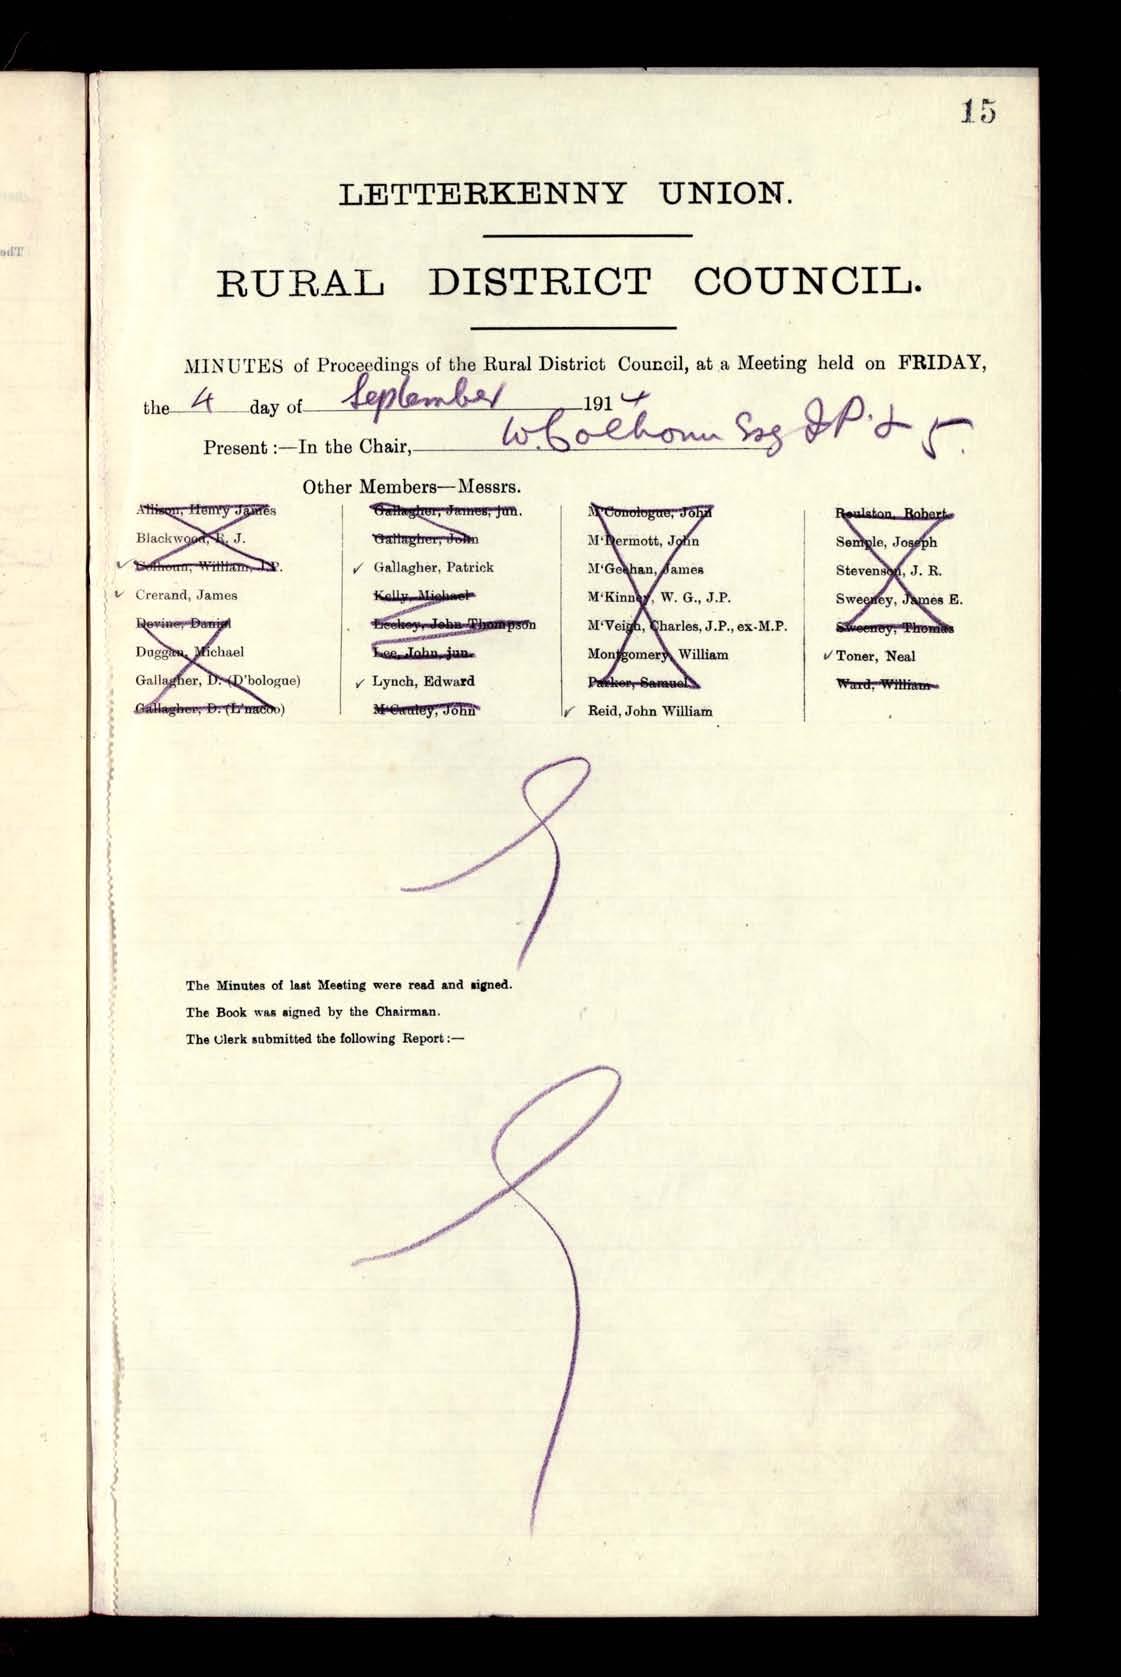 15
LETTERKENNY UNION.
RURAL DISTRICT COUNCIL.
MINUTES of Proceedings of the Rural District Council, at a Meeting held on FRIDAY,
the 4 day of September 1914
Present :—In the Chair, W. Colhoun Esq J.P. & 5.
Other Members—Messrs.
Allison, Henry James
Blackwood, R. J.
✓ Colhoun, William, J.P.
✓ Crerand, James
Devine, Daniel
Duggan, Michael
Gallagher, D. (D'bologue)
Gallagher, D. (L'nacoo)
Gallagher, James, jun.
Gallagher, John
✓ Gallagher, Patrick
Kelly, Michael
Leckey, John Thompson
Lee, John, jun.
✓ Lynch, Edward
M'Cauley, John
M'Conologue, John
M'Dermott, John
M'Geehan, James
M'Kinney, W. G., J.P.
M'Veigh, Charles, J.P., ex-M.P.
Montgomery, William
Parker, Samuel
✓ Reid, John William
Roulston, Robert
Semple, Joseph
Stevenson, J. R.
Sweeney, James E.
Sweeney, Thomas
✓ Toner, Neal
Ward, William
The Minutes of last Meeting were read and signed.
The Book was signed by the Chairman.
The Clerk submitted the following Report :—